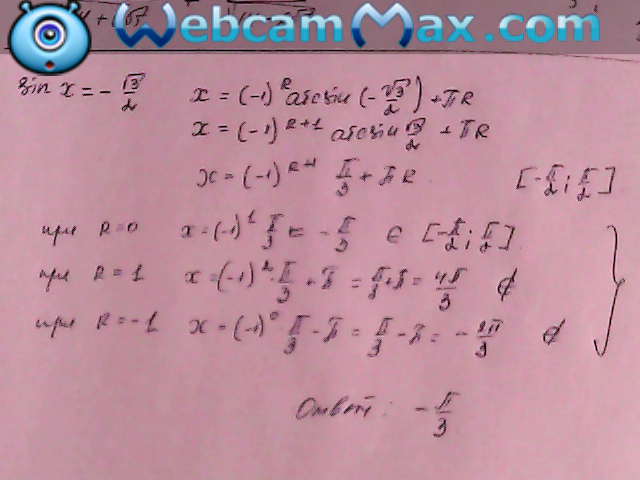 WebcamMax.com
sin x = - √3/2
x = (-1)^k arcsin (-√3/2) + πk
x = (-1)^k+1 arcsin √3/2 + πk
x = (-1)^k+1 π/3 + πk [-π/2; π/2]
при k=0 x=(-1)^1 π/3 = -π/3 ∈ [-π/2; π/2]
при k=1 x=(-1)^2·π/3 + π = π/3+π = 4π/3 ∉
при k=-1 x=(-1)^0 π/3 - π = π/3 - π = - 2π/3 ∉
Ответ: - π/3